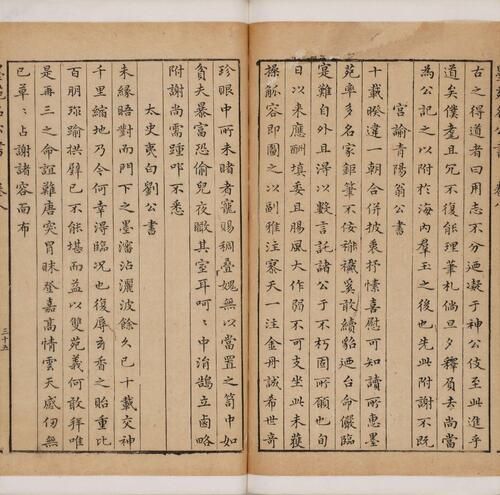 古之道者曰用志不分迺凝于神公伎至此進乎
道矣僕耄且冗不復能理筆札倘旦夕釋負去尚當
為公記之以附於海內羣玉之後也先此附謝不旣
宮諭青陽翁公書
十載睽違一朝合併披裘抒愫喜慰可知讀所惠墨
苑率多名家鉅筆不佞雖襪襄敢續貂迺台命嚴臨
寔難自外且得以數言託諸公于不朽固所願也旬
日以來應酬填委且賜風大作弱不可支坐此未獲
操觚容即圖之以副雅注寮天一注金丹誠希世奇
珍眼中所未睹者寵賜稠疊媿無以當置之笥中如
貧夫暴富恐偷兒夜瞰其室耳呵〻中涓鵠立鹵略
附謝尚需踵叩不悉
太史衷白劉公書
未緣晤對而門下之墨瀋沾灑波餘久已十載交神
千里縮地乃今何幸得臨况也復辱玄香之貽重比
百朋珍踰拱璧已不能堪而益以雙苑義何敢拜唯
是再三之命誼難唐突冒昧登嘉高情雲天感仞無
已草〻占謝諸容面布
卷八
三十五